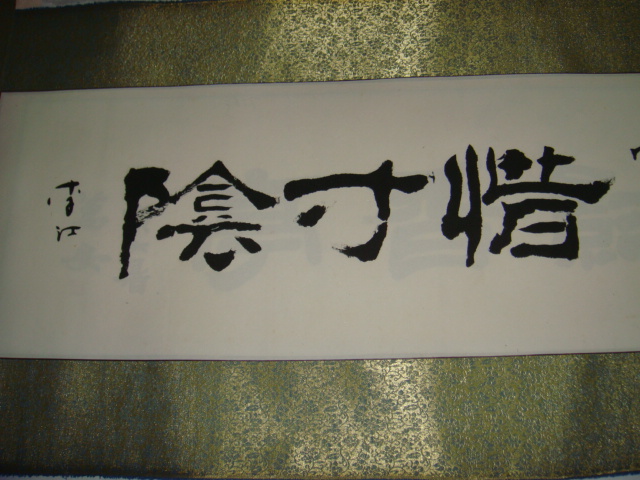 惜寸陰